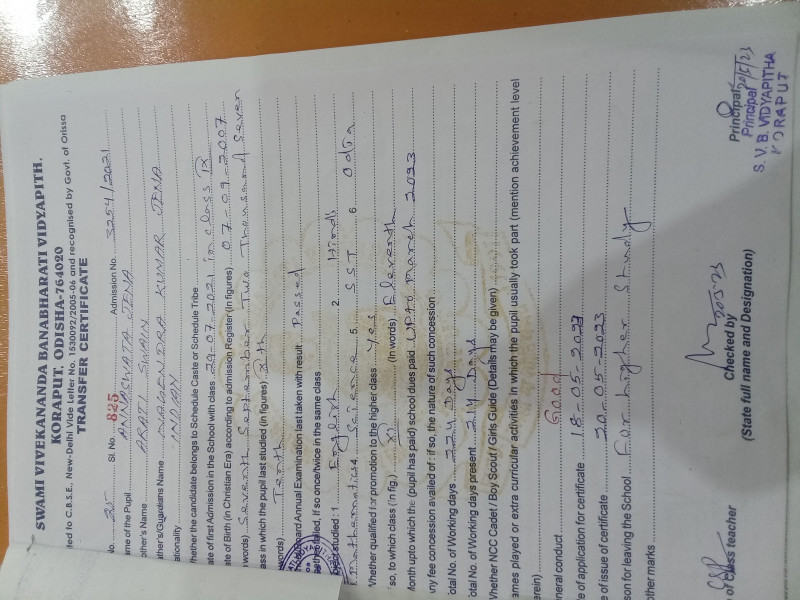 SWAMI VIVEKANANDA BANABHARATI VIDYAPITH.
KORAPUT, ODISHA-764020
ted to C.B.S.E. New-Delhi Vide Letter No. 1530092/2005-06 and recognised by Govt. of Orissa
TRANSFER CERTIFICATE
No. 25 Sl. No. 825 Admission No. 3254/2021
me of the Pupil ANNASWATA JENA
other's Name ARATI SWAIN
ather's/Guardians Name NAGENDRA KUMAR JENA
ationality INDIAN
hether the candidate belongs to Schedule Caste or Schedule Tribe
ate of first Admission in the School with class 29-07-2021 in class IX
ate of Birth (in Christian Era) according to admission Register (In figures) 07-09-2007
words) Seventh September Two Thousand Seven
ass in which the pupil last studied (in figures) Xth
words) Tenth
Board Annual Examination last taken with result Passed
failed, If so once/twice in the same class
studied : 1 English 2. Hindi
Mathematics 4. Science 5. SST 6 Odia
Whether qualified for promotion to the higher class Yes
so, to which class (in fig.) XI (In words) Eleventh
Month upto which the (pupil has paid) school dues paid Upto March 2023
ny fee concession availed of : if so, the nature of such concession
otal No. of Working days 224 Days
otal No. of Working days present 214 Days
Whether NCC Cadet / Boy Scout / Girls Guide (Details may be given)
ames played or extra curricular activities in which the pupil usually took part (mention achievement level
erein)
neral conduct Good
e of application for certificate 18-05-2023
e of issue of certificate 20-05-2023
son for leaving the School For higher Study
other marks
of Class teacher
Checked by
(State full name and Designation)
Principal
Principal
S. V. B. VIDYAPITHA
KORAPUT